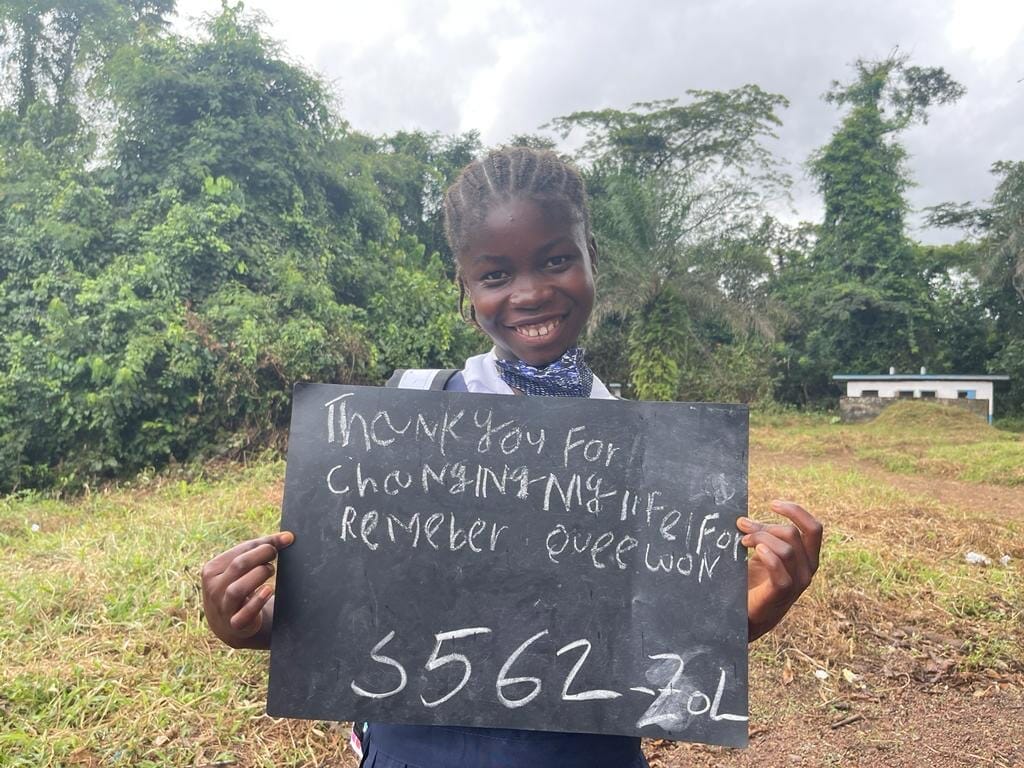 Thank you For
changing My life | For
Remeber queewon
S562-ZoL